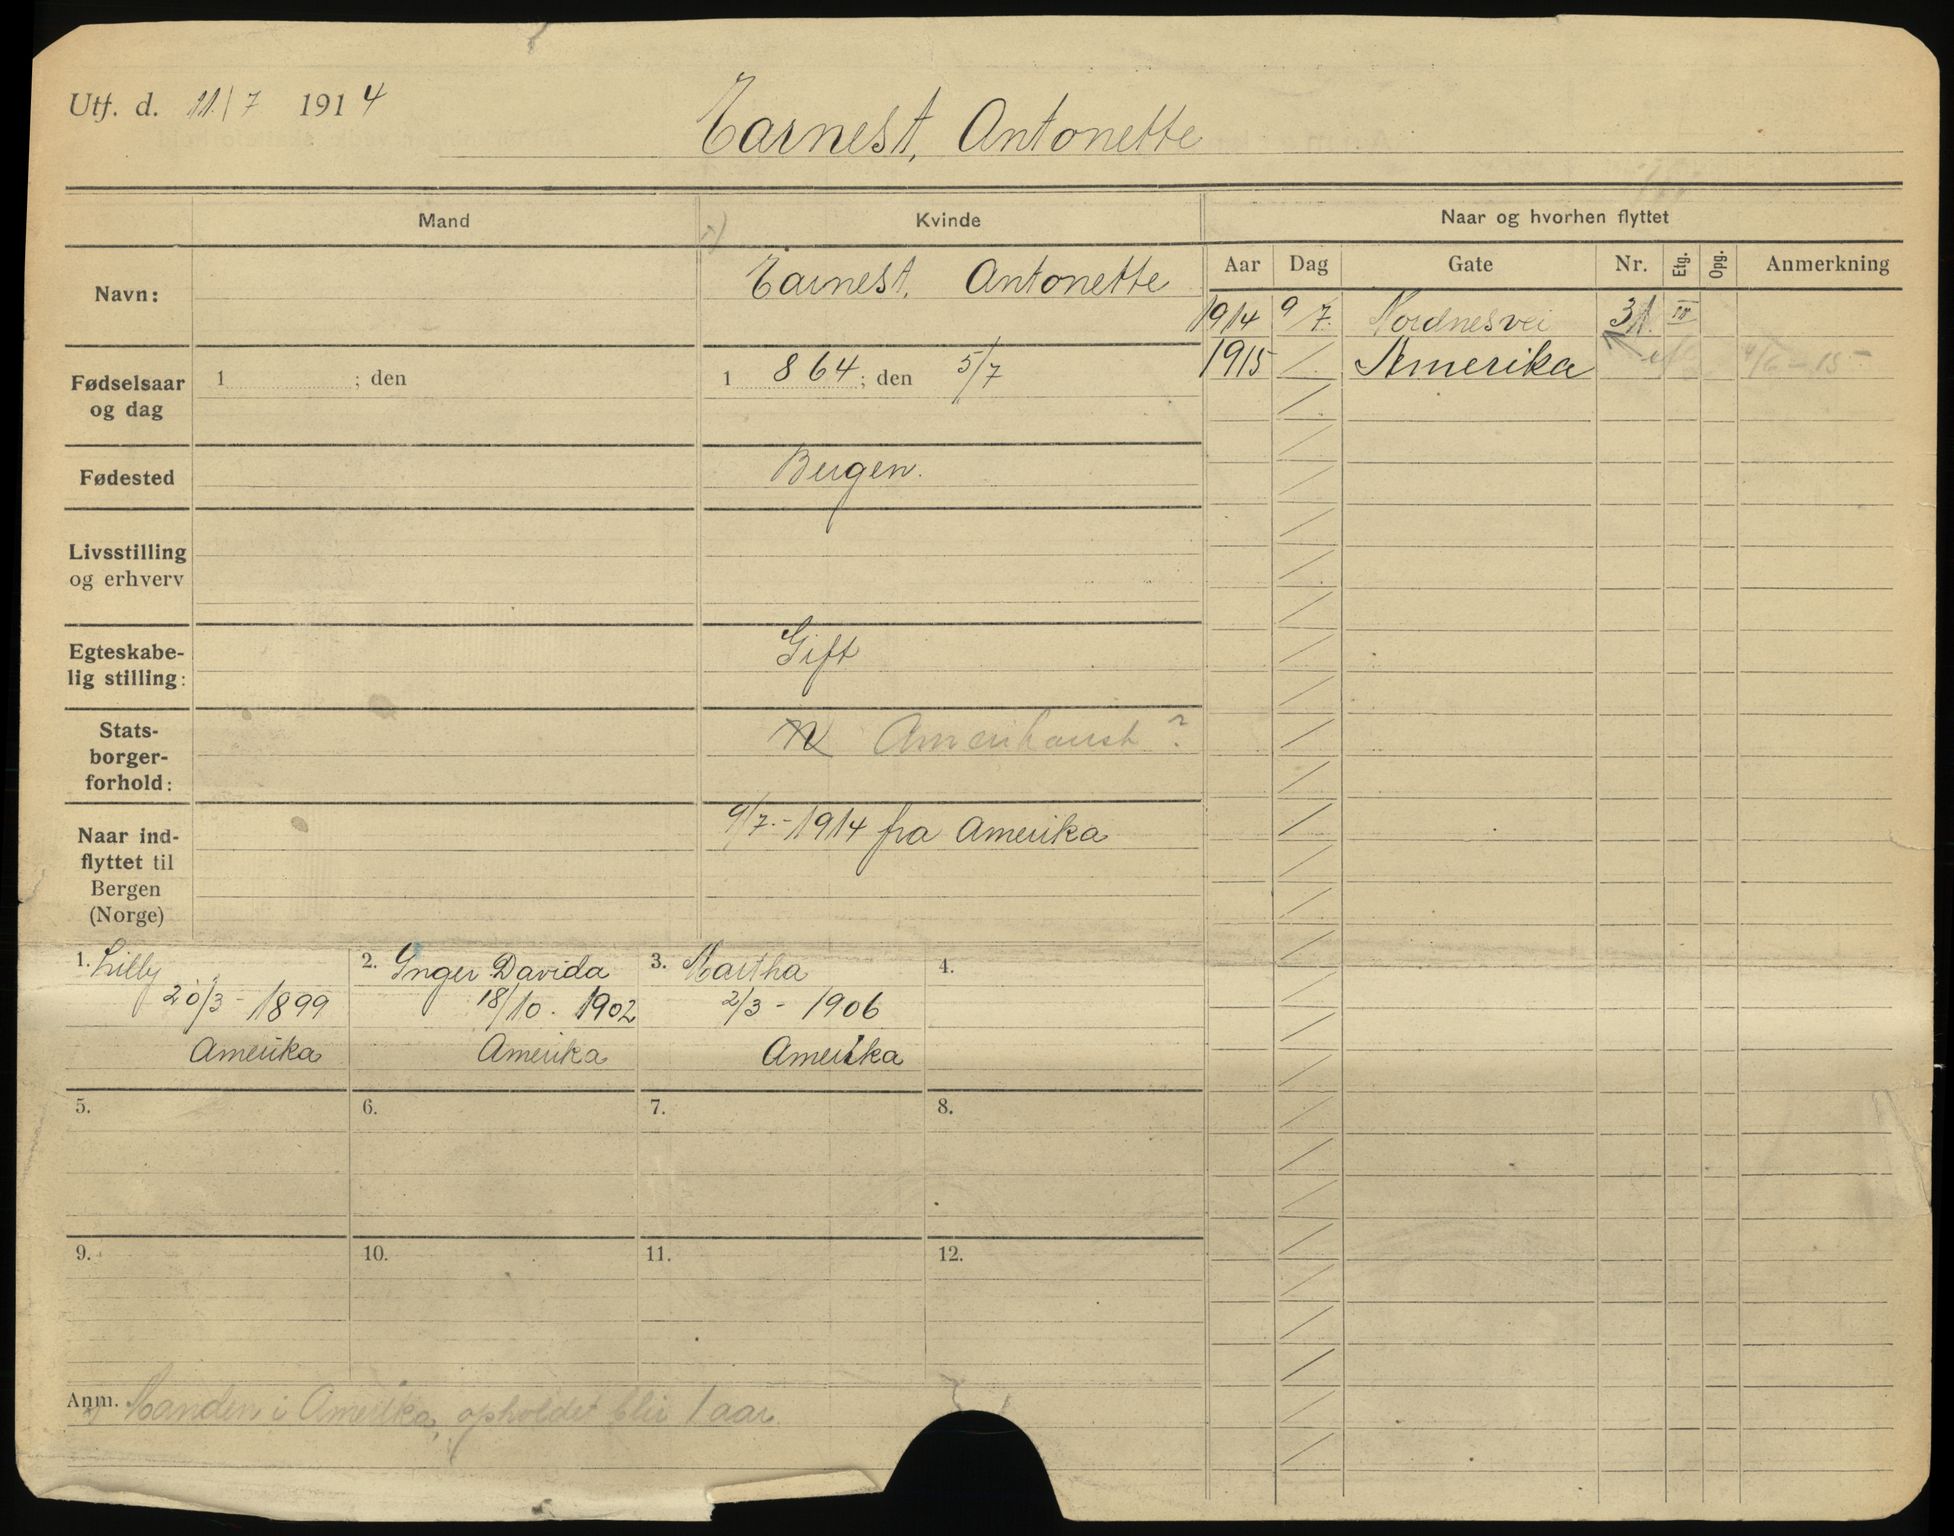 Utf. d. 11./7 1914
Earnest, Antonette
Mand
Kvinde
Naar og hvorhen flyttet
Aar Dag Gate Nr. Etg. Opg. Anmerkning
Navn:
Earnest, Antonette
1914 9/7. Nordnesvei 31. III
1915 / Amerika 4/6-15
Fødselsaar
og dag
1 ; den
1 864; den 5/7
Fødested
Bergen.
Livsstilling
og erhverv
Egteskabe-
lig stilling:
Gift
Stats-
borger-
forhold:
N Amerikansk?
Naar ind-
flyttet til
Bergen
(Norge)
9/7.-1914 fra Amerika
1. Lilly
20/3-1899
Amerika
2. Inger Davida
18/10. 1902
Amerika
3. Martha
2/3-1906
Amerika
4.
5.
6.
7.
8.
9.
10.
11.
12.
Anm. Manden i Amerika, opholdet blir 1 aar.